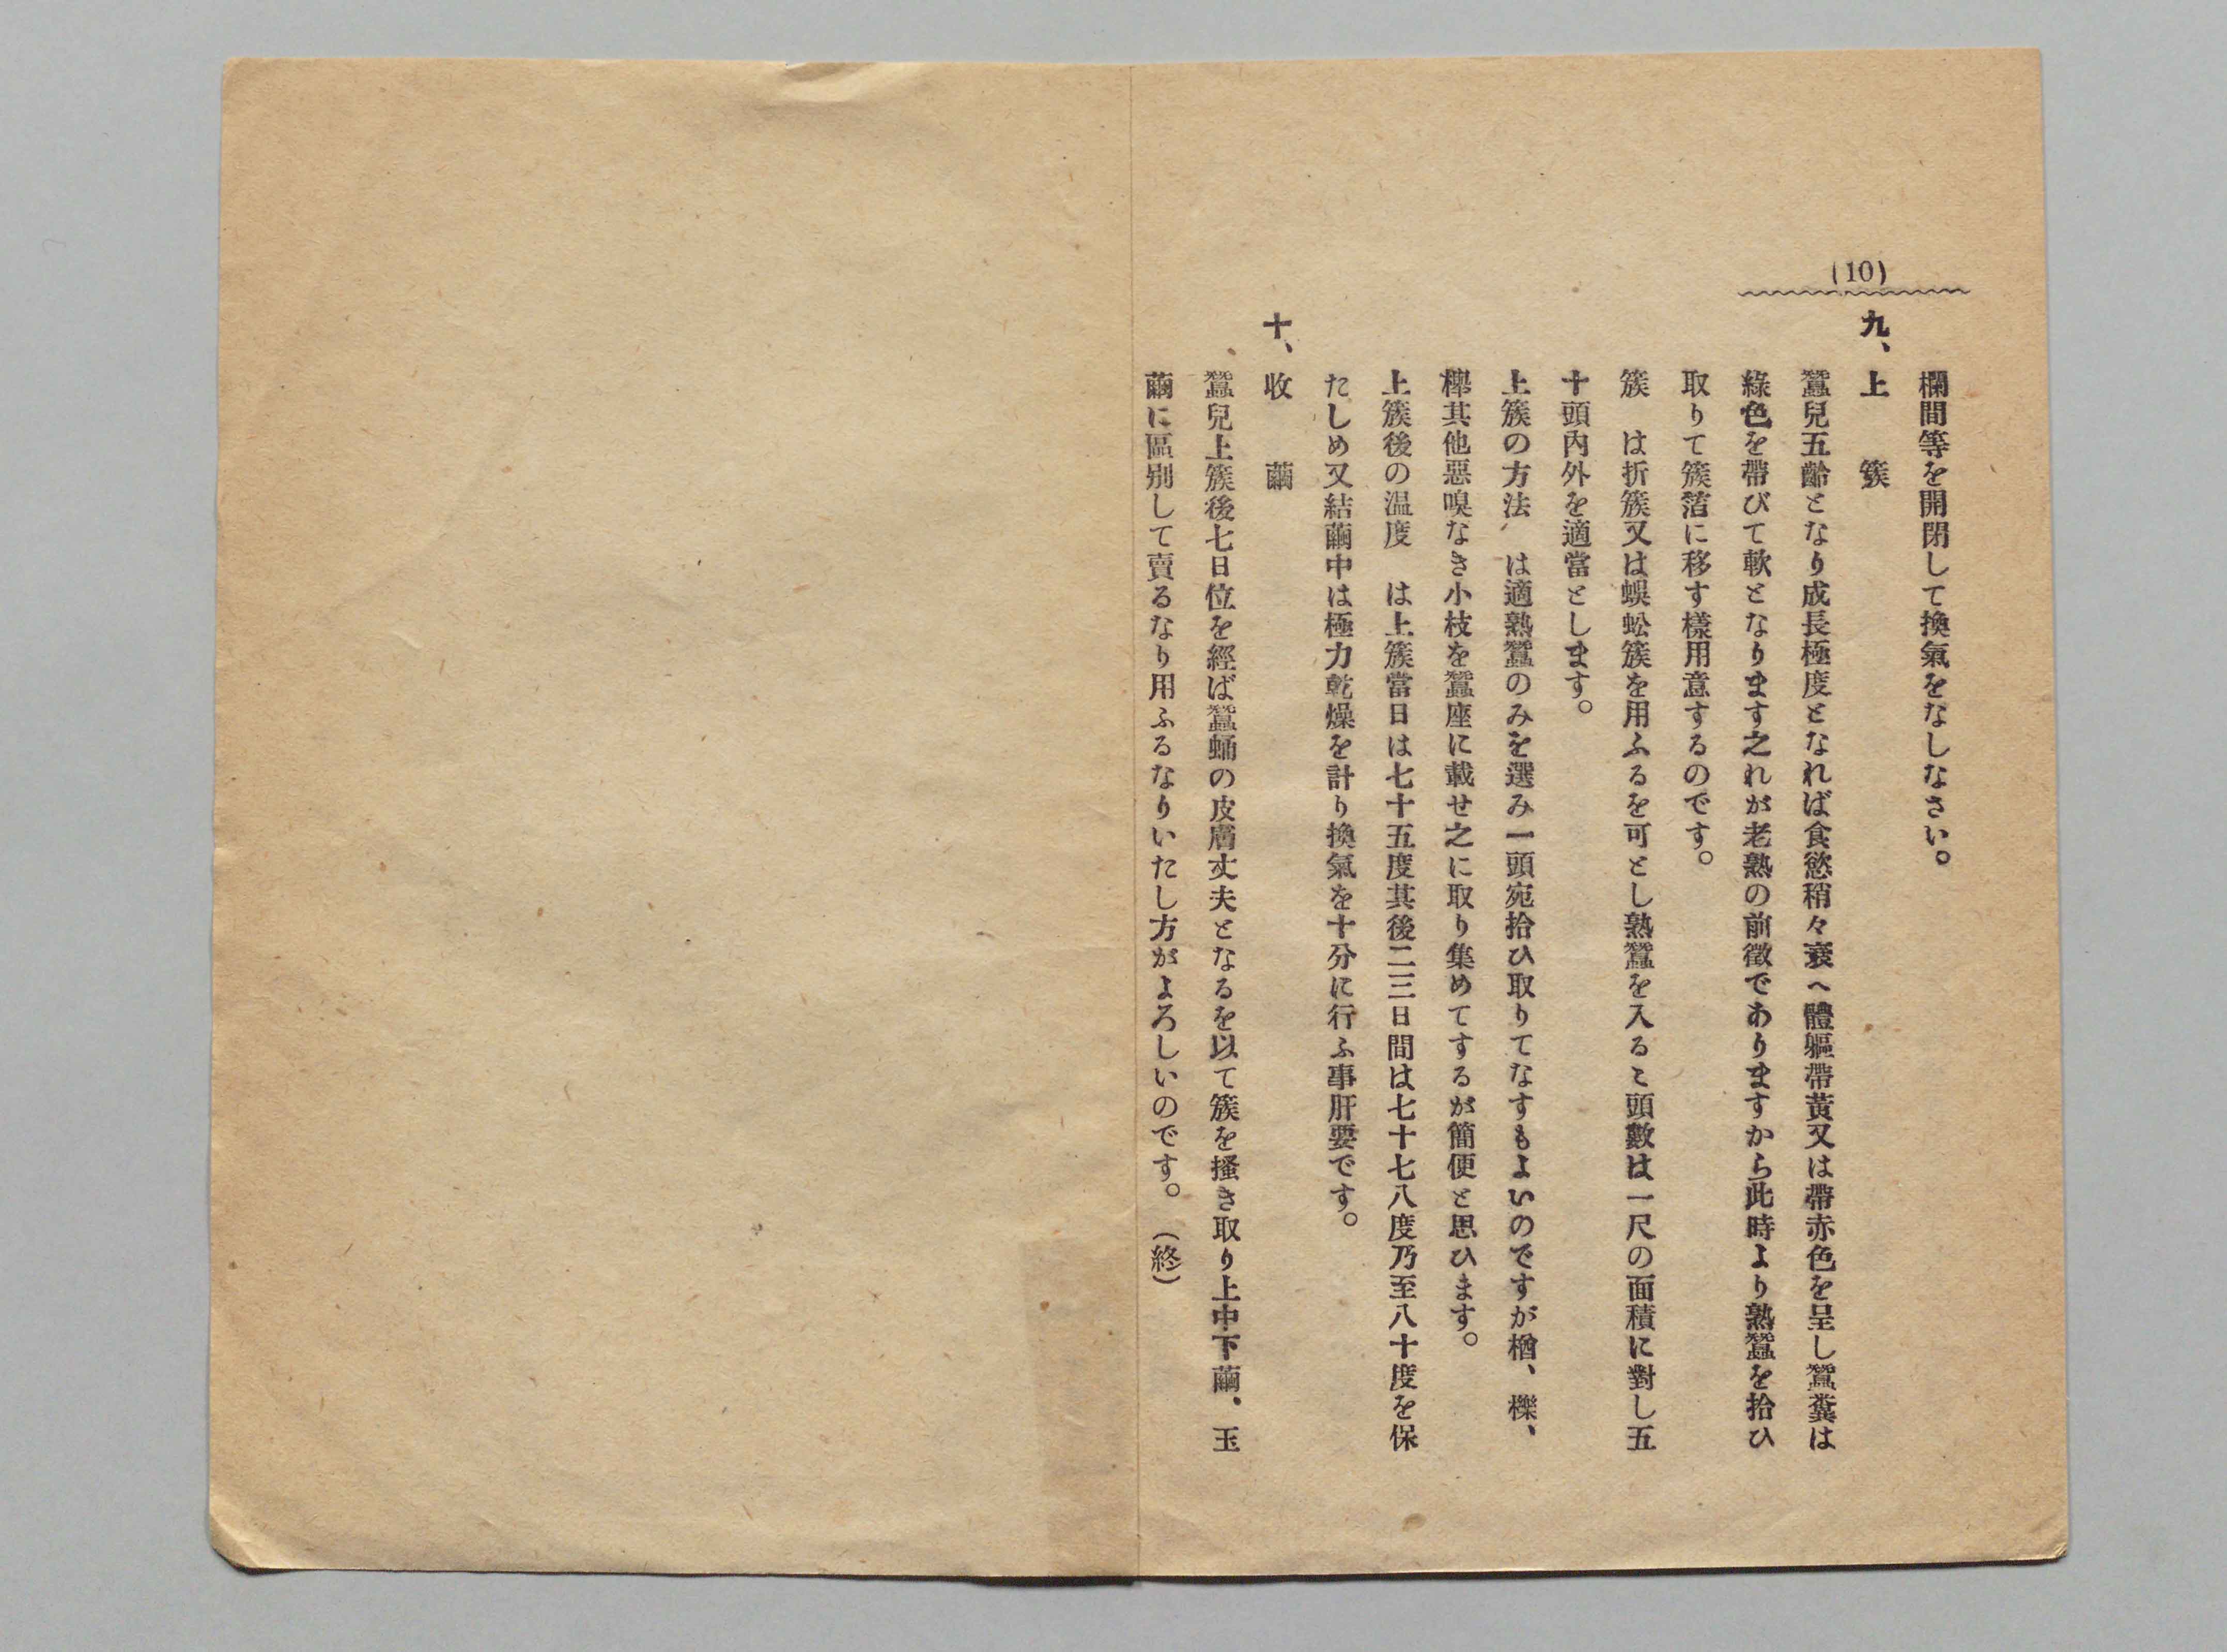 (10)
欄間等を開閉して換氣をなしなさい。
九、上　簇
蠶兒五齡となり成長極度となれば食慾稍々衰へ體軀帶黃又は帶赤色を呈し蠶糞は
綠色を帶びて軟となります之れが老熟の前徵でありますから此時より熟蠶を拾ひ
取りて簇箔に移す樣用意するのです。
簇　は折簇又は蜈蚣簇を用ふるを可とし熟蠶を入るゝ頭數は一尺の面積に對し五
十頭內外を適當とします。
上簇の方法　は適熟蠶のみを選み一頭宛拾ひ取りてなすもよいのですが楢、櫟、
樺其他惡嗅なき小枝を蠶座に載せ之に取り集めてするが簡便と思ひます。
上簇後の温度　は上簇當日は七十五度其後二三日間は七十七八度乃至八十度を保
たしめ又結繭中は極力乾燥を計り換氣を十分に行ふ事肝要です。
十、收　繭
蠶兒上簇後七日位を經ば蠶蛹の皮膚丈夫となるを以て簇を搔き取り上中下繭、玉
繭に區別して賣るなり用ふるなりいたし方がよろしいのです。（終）